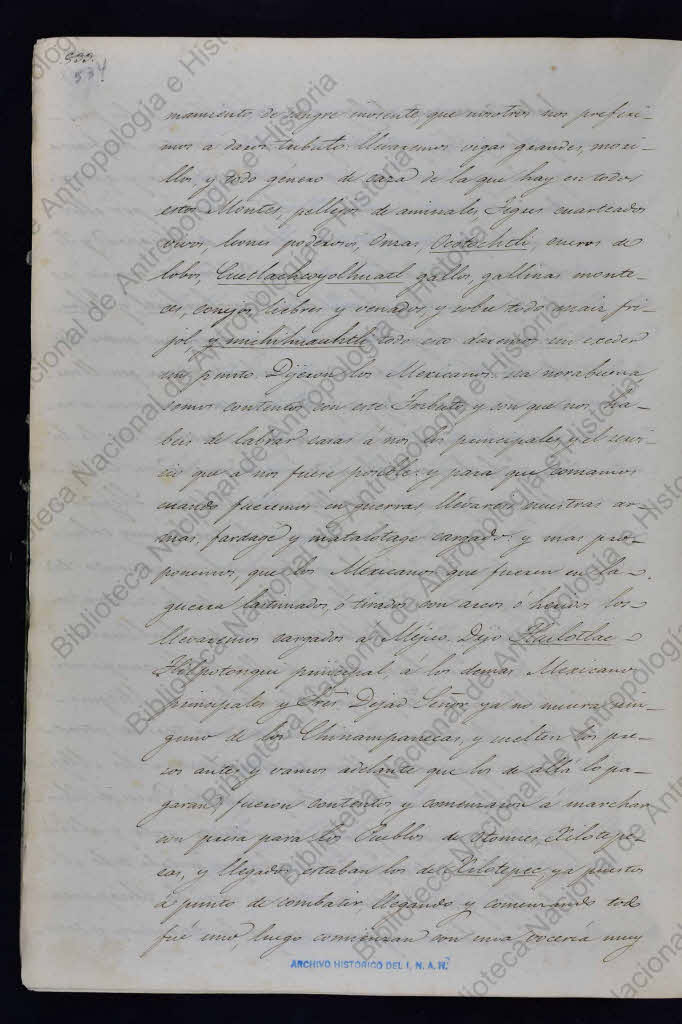 533.
534
mamiento de sangre inosente que nosotros nos preferi-
mos a daros tributo: llevaremos vigas grandes, mori-
llos y todo genero de caza de la que hay en todos
estos Montes, pellejos de animales, Tigres cuarteados
vivos, leones poderosos, Onsas, Ocotochtli, cueros de
lobos, Cuetlachcoyolhuatl gallos, gallinas monte-
ces, conejos, liebres y venados, y sobre todo maiz fri-
jol y michihuauhtli todo eso daremos sin exceder
un punto. Dijeron los Mexicanos: sea norabuena
somos contentos con este Tributo, y con que nos ha-
beis de labrar casas á nos los principales, y el servi-
cio que a nos fuese posible: y para que comamos
cuando fueremos en guerras llevareis nuestras ar-
mas, fardage y matalotage cargado: y mas pro-
ponemos, que los Mexicanos que fueren en la
guerra lastimados, ó tirados con arcos ó heridos los
llevaremos cargados a Méjico. Dijo
Hilpotonqui principal, á los demas Mexicanos
principales y Sres. Dejad Señor, ya no muera nin-
guno de los Chinampanecas, y suelten los pre-
sos antes y vamos adelante que los de allá lo pa-
garan, fueron contentos y comenzaron á marchar
con prisa para los Pueblos de Otomies, Xilotepe-
cas, y llegados estaban los de Xilotepec ya puestos
a punto de combatir, llegando y comenzando todo
fué uno, luego comienzan con una voceria muy
ARCHIVO HISTORICO DEL I. N. A. H.
Biblioteca Nacional de Antropología e Historia